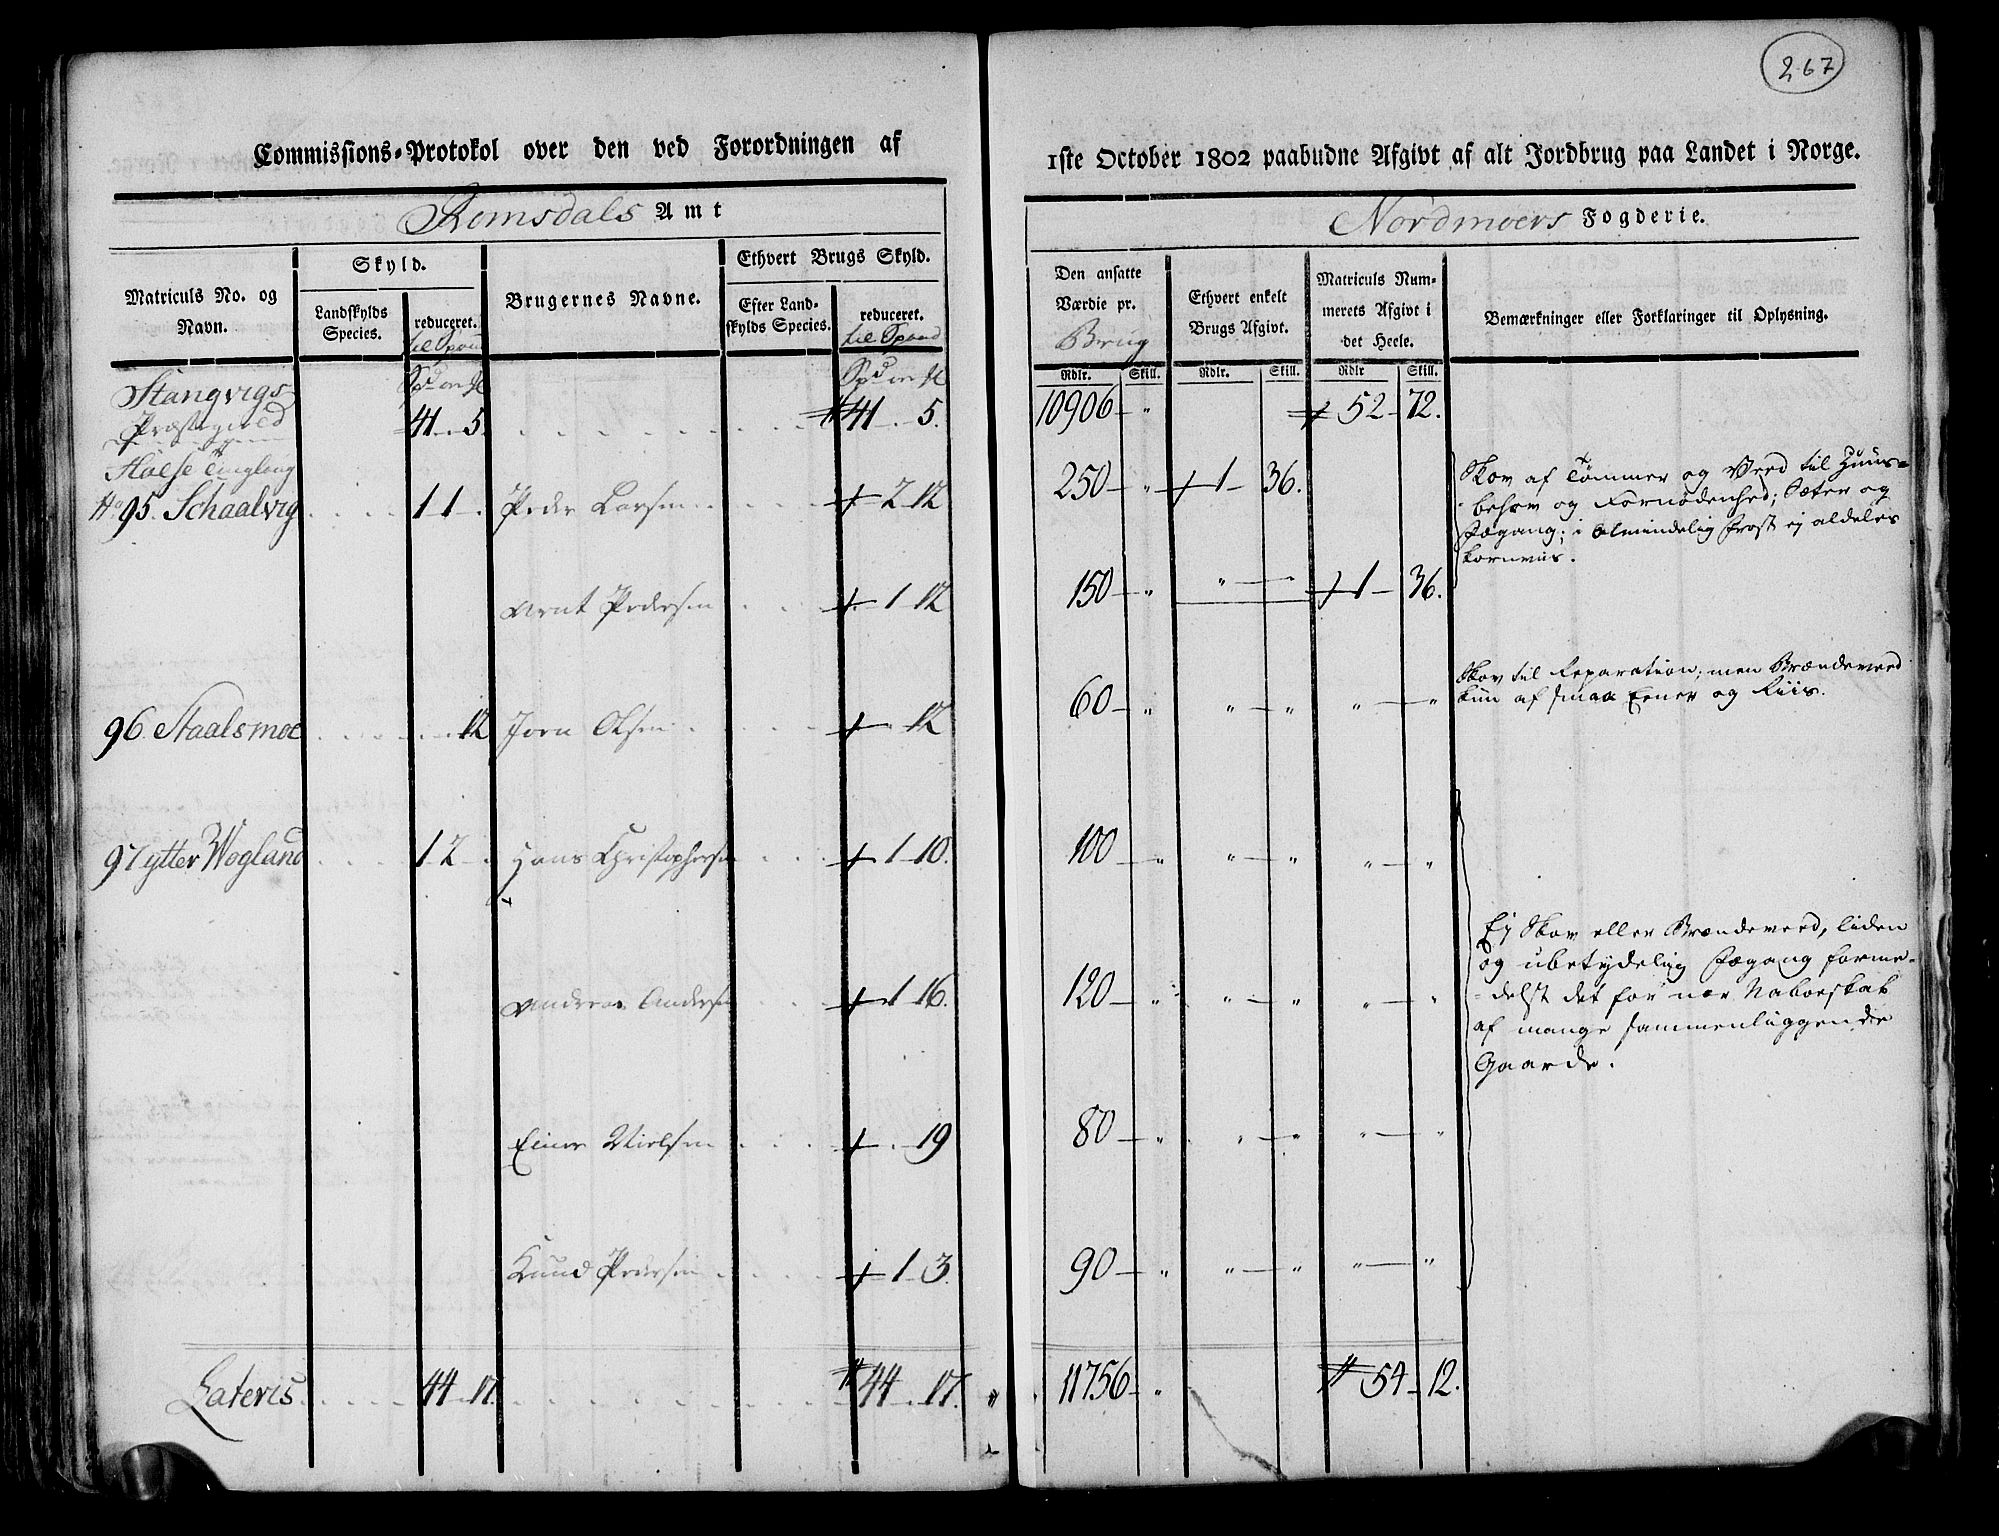 267
Commissions-Protokol over den ved Forordningen af
1ste October 1802 paabudne Afgivt af alt Jordbrug paa Landet i Norge.
Romsdals Amt
Nordmoers Fogderie.
Matriculs No. og
Navn.
Skyld.
Landskylds
Species.
reduceret.
til Spand
Brugernes Navne.
Ethvert Brugs Skyld.
Efter Land-
skylds Species.
reduceret.
til Spand
Den ansatte
Værdie pr.
Brug
Ethvert enkelt
Brugs Afgivt.
Matriculs Num-
merets Afgivt i
det Heele.
Bemærkninger eller Forklaringer til Oplysning.
Rdlr. Skill. Rdlr. Skill. Rdlr Skill.
Stangvigs
Præstegield 41 . 5. 41 . 5. 10906 – „ 52 – 72.
Halse Tinglaug
No 95. Schaalvig 1 1 . Peder Larsen 2 – 12 250 – „ 1 – 36.
Skov af Tømmer og Veed til Huus-
behov og Fornødenhed; Sæter og
Fægang; i almindelig Frost ej aldeles
kornviis.
Arnt Pedersen 1 – 12 150 – „ „ – „ 1 – 36.
96. Staalsmoe 12 Jorn Olsen 12 60 – „ „ – „ „ – „
Skov til Reparation; men Brændeveed
kun af smaa Ener og Riis.
97 ytter Wogland 1 2 . Hans Christophersen 1 – 10. 100 – „ „ – „ „ – „
Ej Skov eller Brændeveed, liden
og ubetydelig Fægang forme-
delst det for nær Naboeskab
af mange sammenliggende
Gaarde.
Andreas Andersen 1 – 16. 120 – „ „ – „ „ – „
Einer Nielsen 19 80 – „ „ – „ „ – „
Knud Pedersen 1 – 3. 90 – „ „ – „ „ – „
Lateris 44 . 17. 44 . 17. 11756 – „ 54 – 12.